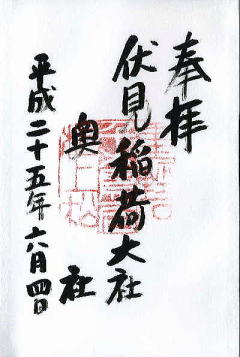 奉拝
伏見稲荷大社
奥社
平成二十五年六月四日